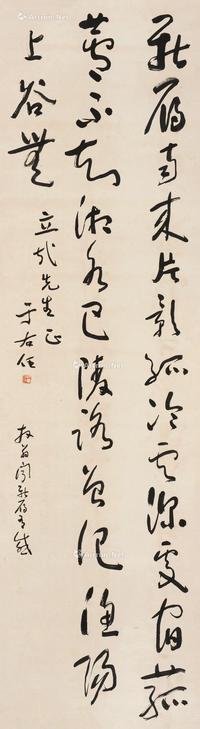 新雁南來片影孤冷雲深處宿菰
蘆不知湘水巴陵路曾記漁陽
上谷無
立先生正
于右任
放翁聞新雁有感